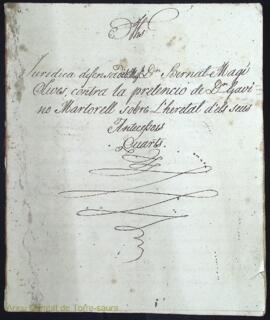 Jurídica defensa del Sr. Dn. Bernat Magí
Olives, contra la pretencio de Dn. Gavi-
no Martorell sobre l'heretát d'els seus
Antecessors
Quarts.
Arxiu Comtal de Torre-saura